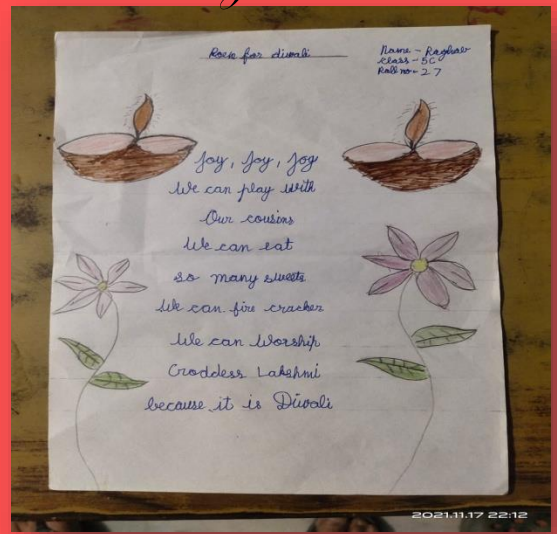 Poem for diwali
Name - Raghav
class - 5C
Roll no - 27
Joy, Joy, Joy
We can play with
Our cousins
We can eat
so many sweets
We can fire cracker
We can Worship
Goddess Lakshmi
because it is Diwali
2021.11.17 22:12